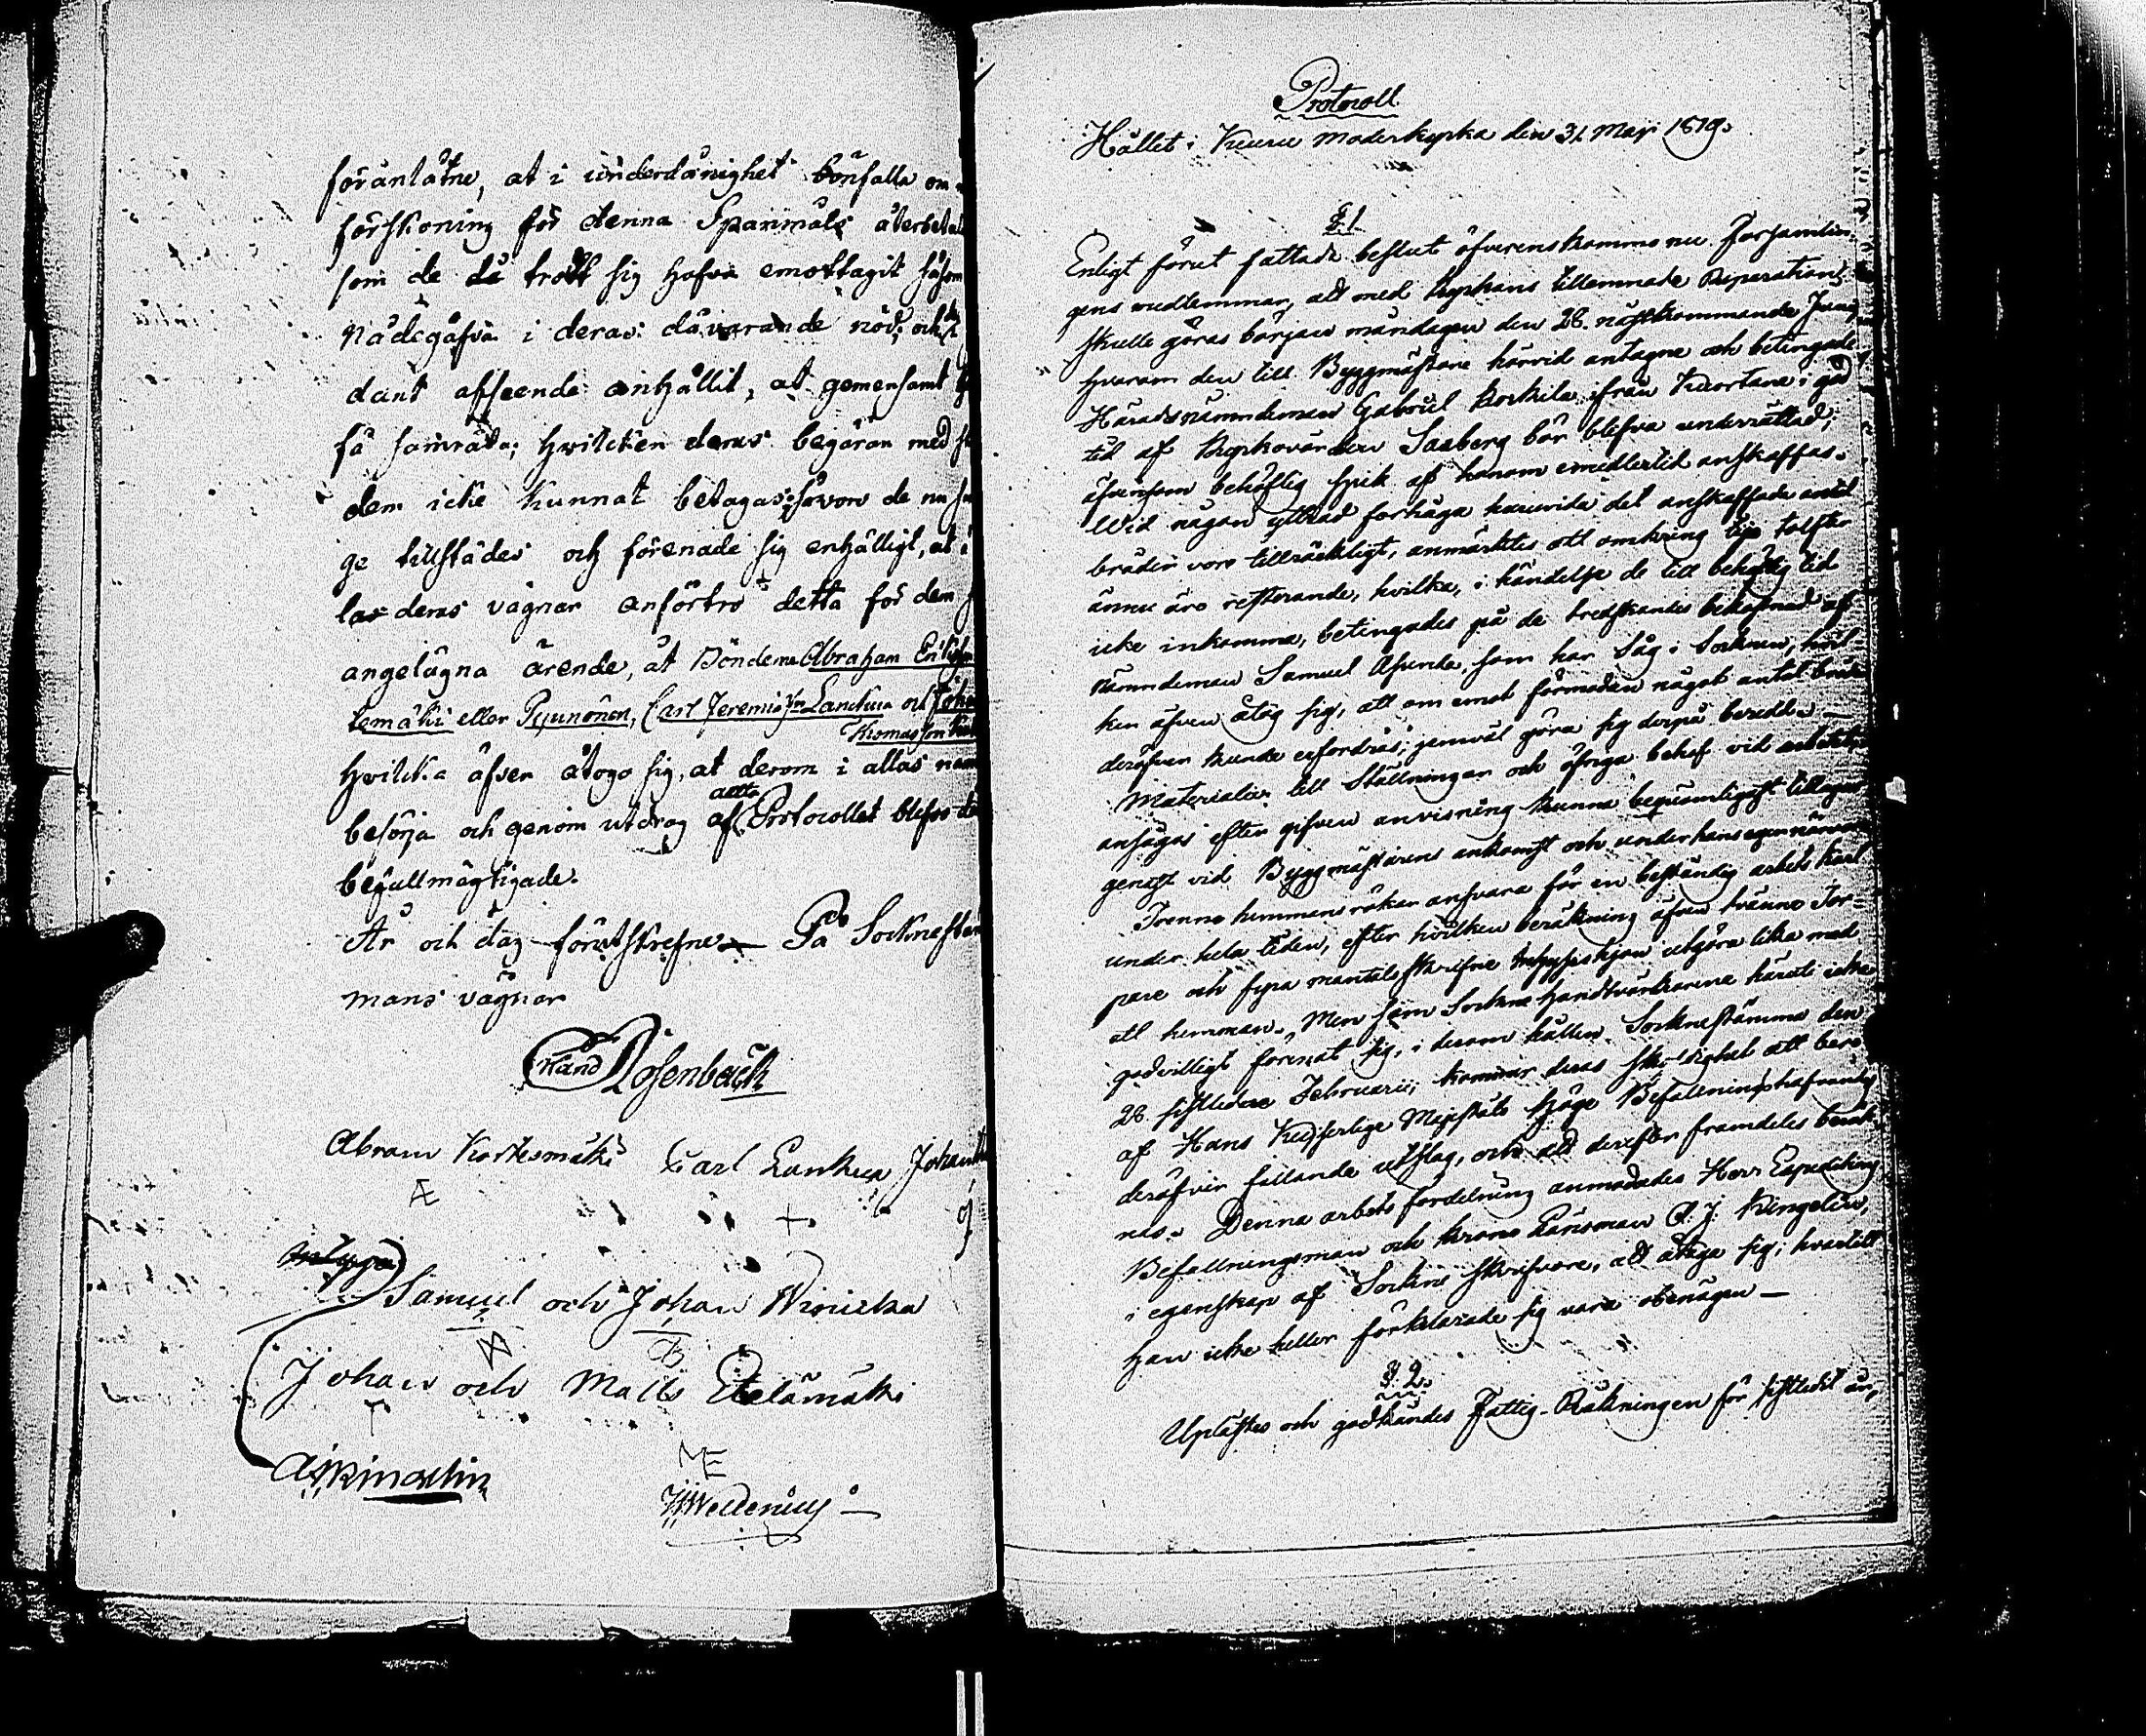 föranlåtne, at i underdånighet bönfalla om
förskoning för denna Spanmåls återbetal
som de då trodt sig hafva emottagit såsom
Nådegåfva i deras dåvarande nöd; och
dant afseende anhållit, at gemensamt
få samråda; hwilcken deras begäran med
dem icke kunnat betagas; hvarom de nu
ge tillstädes och förenade sig enhälligt, at i
las deras vägnar anförtro detta för dem
angelägna ärende, åt Bönderne Abraham Ericsson
temäki eller Pyynönen, Carl Jeremiæson Lankua och Johan
Thomasson
hvilcka äfven åtogo sig, at derom i allas namn
besörja och genom utdrag af detta Protocollet blefvo de
befullmägtigade.
År och dag förutskrefne På Sockneste
mans vägnar
Rosenback
Abram Kortesmäki Carl Lankua Johan
Æ
Samuel och Johan
Johan och Matts Etelämäki
ME
Protocoll
Hållet i Kuure Moderkyrka den 31 Maji 1819.
§ 1
Enligt förut fattade beslut öfverenskommo nu Församlin-
gens medlemmar, att med Kyrkans tillemnade Reparation
skulle göras början måndagen den 28. nästkommande Junii,
hvarom den till Byggmästare härvid antagne och betingade
Häradsnämndeman Gabriel Kockila ifrån Kuortane i god
tid af Kyrkovärden Saxberg bör blifva underrättad;
äfvensom behöflig spik af honom emedlertid anskaffas.
Wid någon yttrad förfråga huruvida det anskaffade antal
bräder voro tillräckligt, anmärktes att omkring tijo tolfter
ännu äro resterande, hvilka, i händelse de till behörig tid
icke inkomma, betingades på de tredskandes bekostnad af
nämndeman Samuel Asunta, som har Såg i Socknen, hvil-
ken äfven åtog sig, att om emot förmodan något antal bräder
deröfver kunde erfordras; jemväl göra sig derpå beredd. —
Materialier till Ställningar och öfriga behof vid arbetet
ansågos efter gifven anvisning kunna beqvämligast tillagas
genast vid Byggmästarens ankomst och under hans egen närvaro
Trenne hemmans rökar ansvara för en beständig arbets karl
under hela tiden, efter hvilken beräkning äfven trenne Tor-
pare och fyra mantalsskrifne Inhyseshjon utgöra lika med
ett hemman. Men som Sockne Handtvärkarene häruti icke
godvilligt förenat sig, i derom hållen Sockneståmma den
28 sistledne Februarii; kommer deras skyldighet att bero
af Hans Kejserlige Majestäts Höge Befallningshafvandes
deröfver fallande utslag, och att derefter framdeles beräk-
nas. Denna arbets fördelning anmodades Herr Expeditions
Befallningsman och Krono Länsman A. J. Kingelin,
i egenskap af Sockne skrifvare, att åtaga sig, hvartill
han icke heller förklarade sig vara obenägen —
§ 2.
Uplästes och godkändes Fattig-Räkningen för sistledit år,